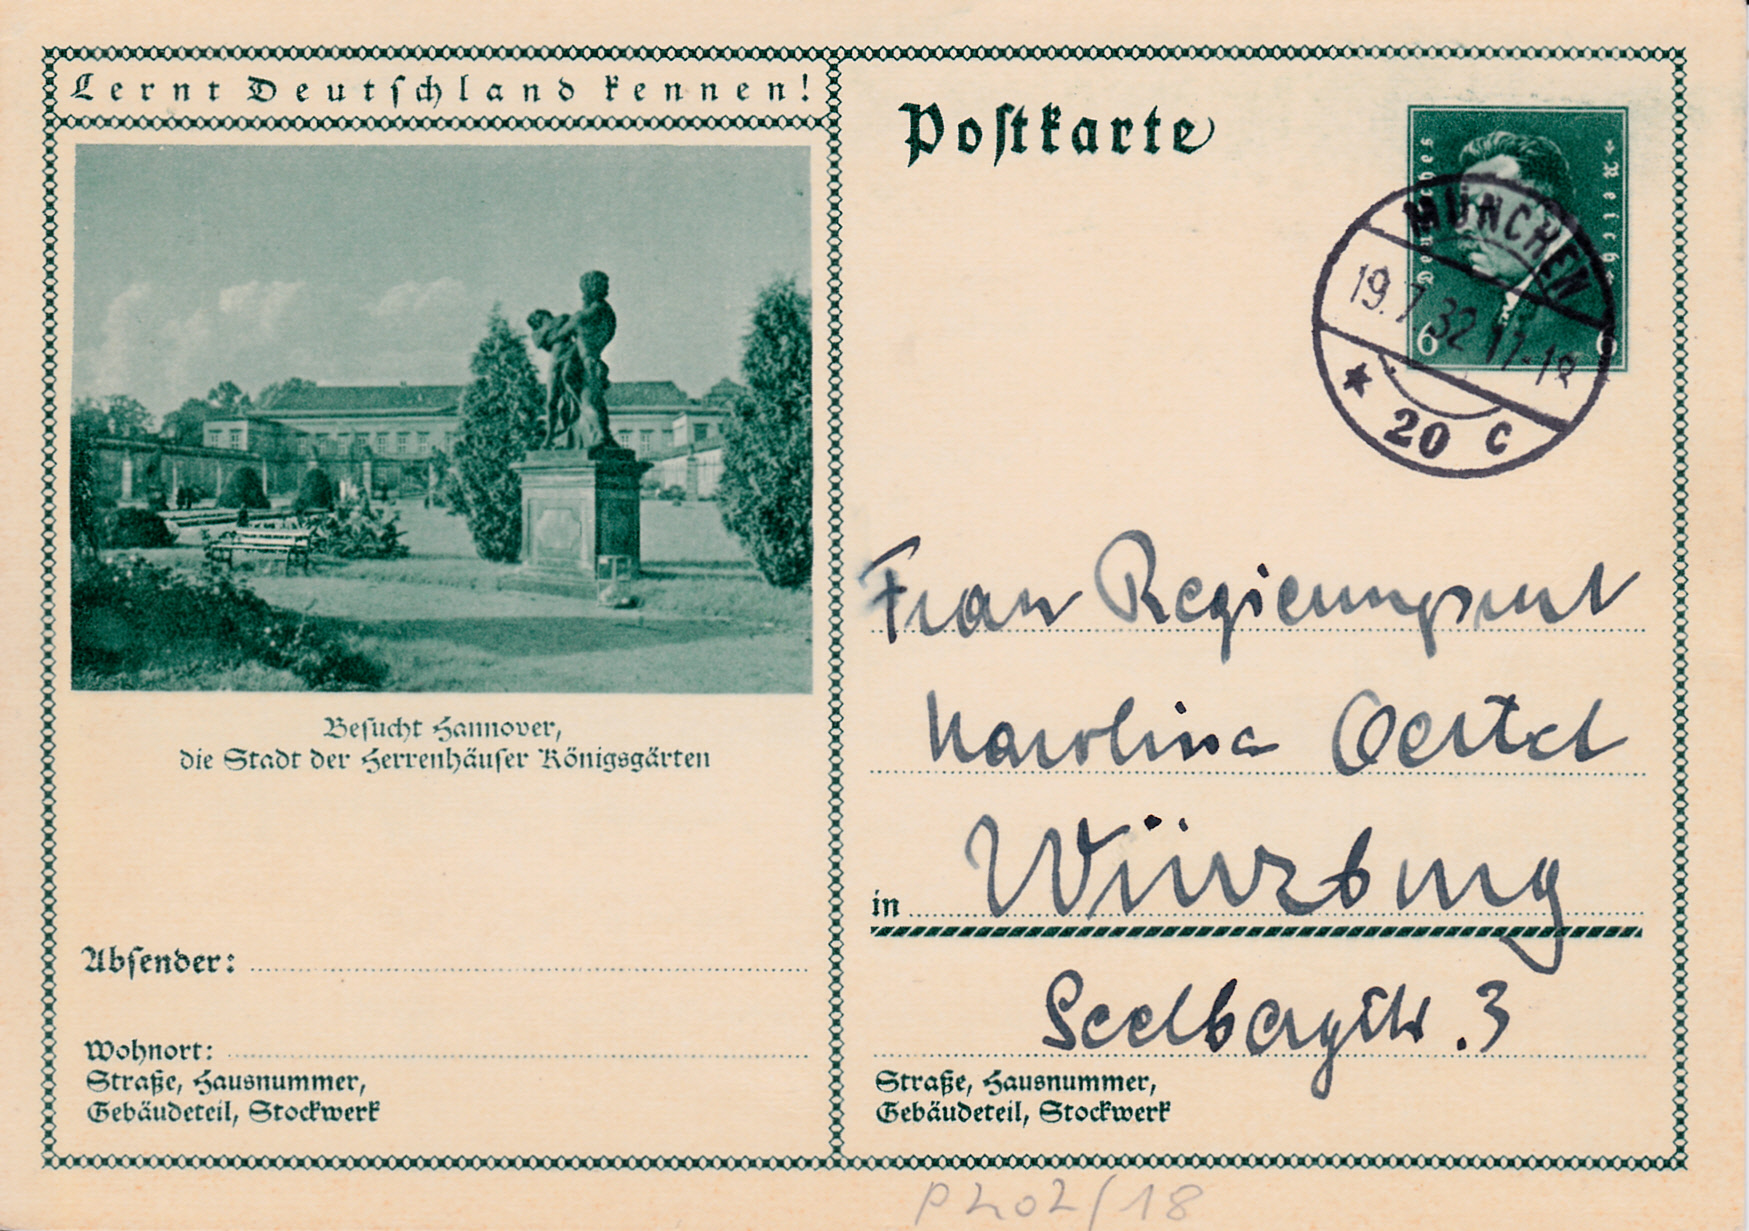 Lernt Deutschland kennen!
Besucht Hannover,
die Stadt der Herrenhäuser Königsgärten
Absender:
Wohnort:
Straße, Hausnummer,
Gebäudeteil, Stockwerk
Postkarte
Deutsches Reich
6 6
MÜNCHEN
19.7.32 11-12
* 20 c
Frau Regierungsrat
Karolina Oertel
in Würzburg
Seelbergstr. 3
Straße, Hausnummer,
Gebäudeteil, Stockwerk
P202/18